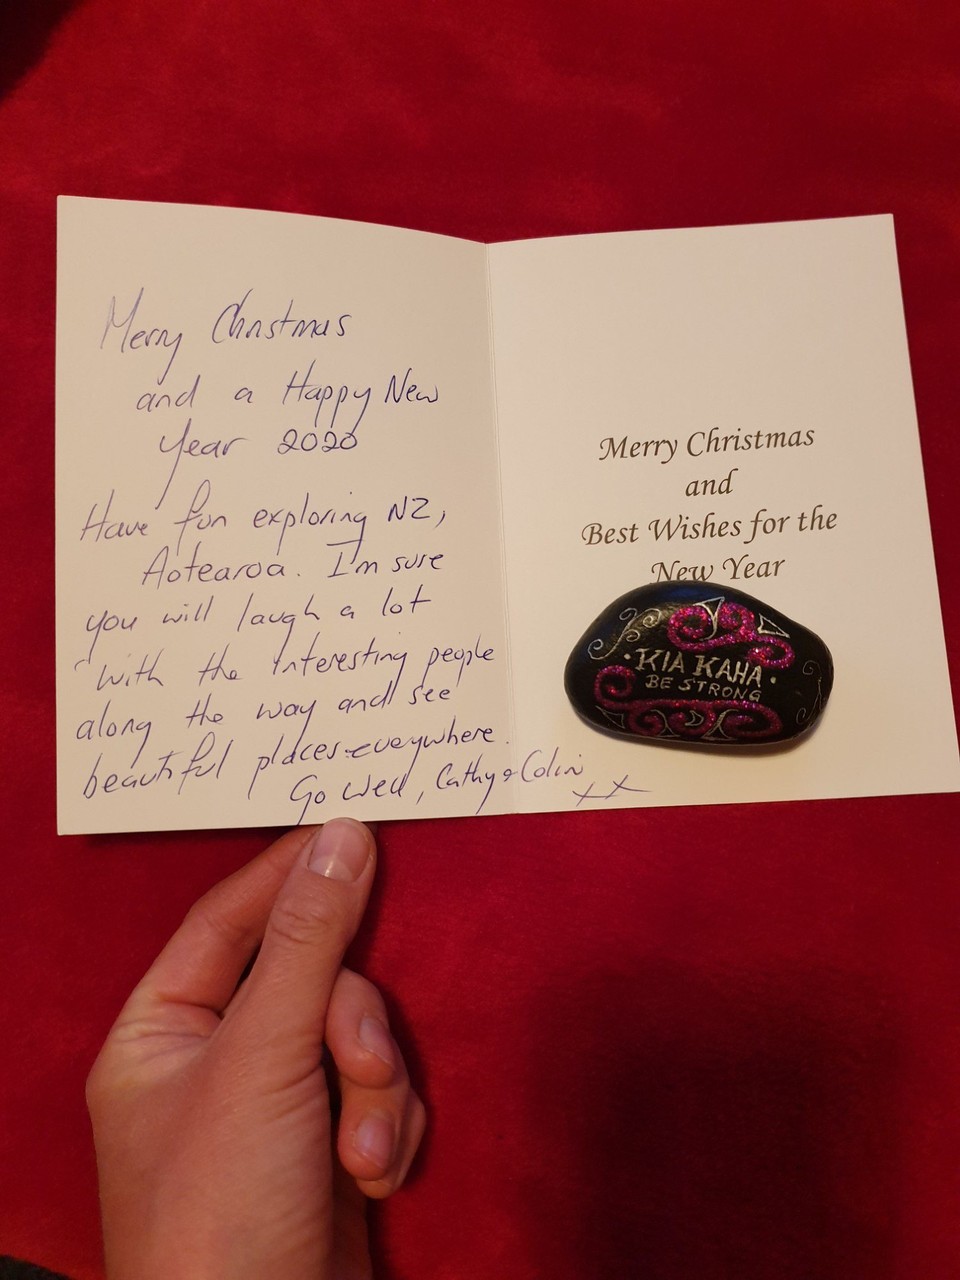 Merry Christmas
and a Happy New
Year 2020
Have fun exploring NZ,
Aotearoa. I'm sure
you will laugh a lot
with the interesting people
along the way and see
beautiful places everywhere.
Go well, Cathy & Colin
xx
Merry Christmas
and
Best Wishes for the
New Year
• KIA KAHA •
BE STRONG